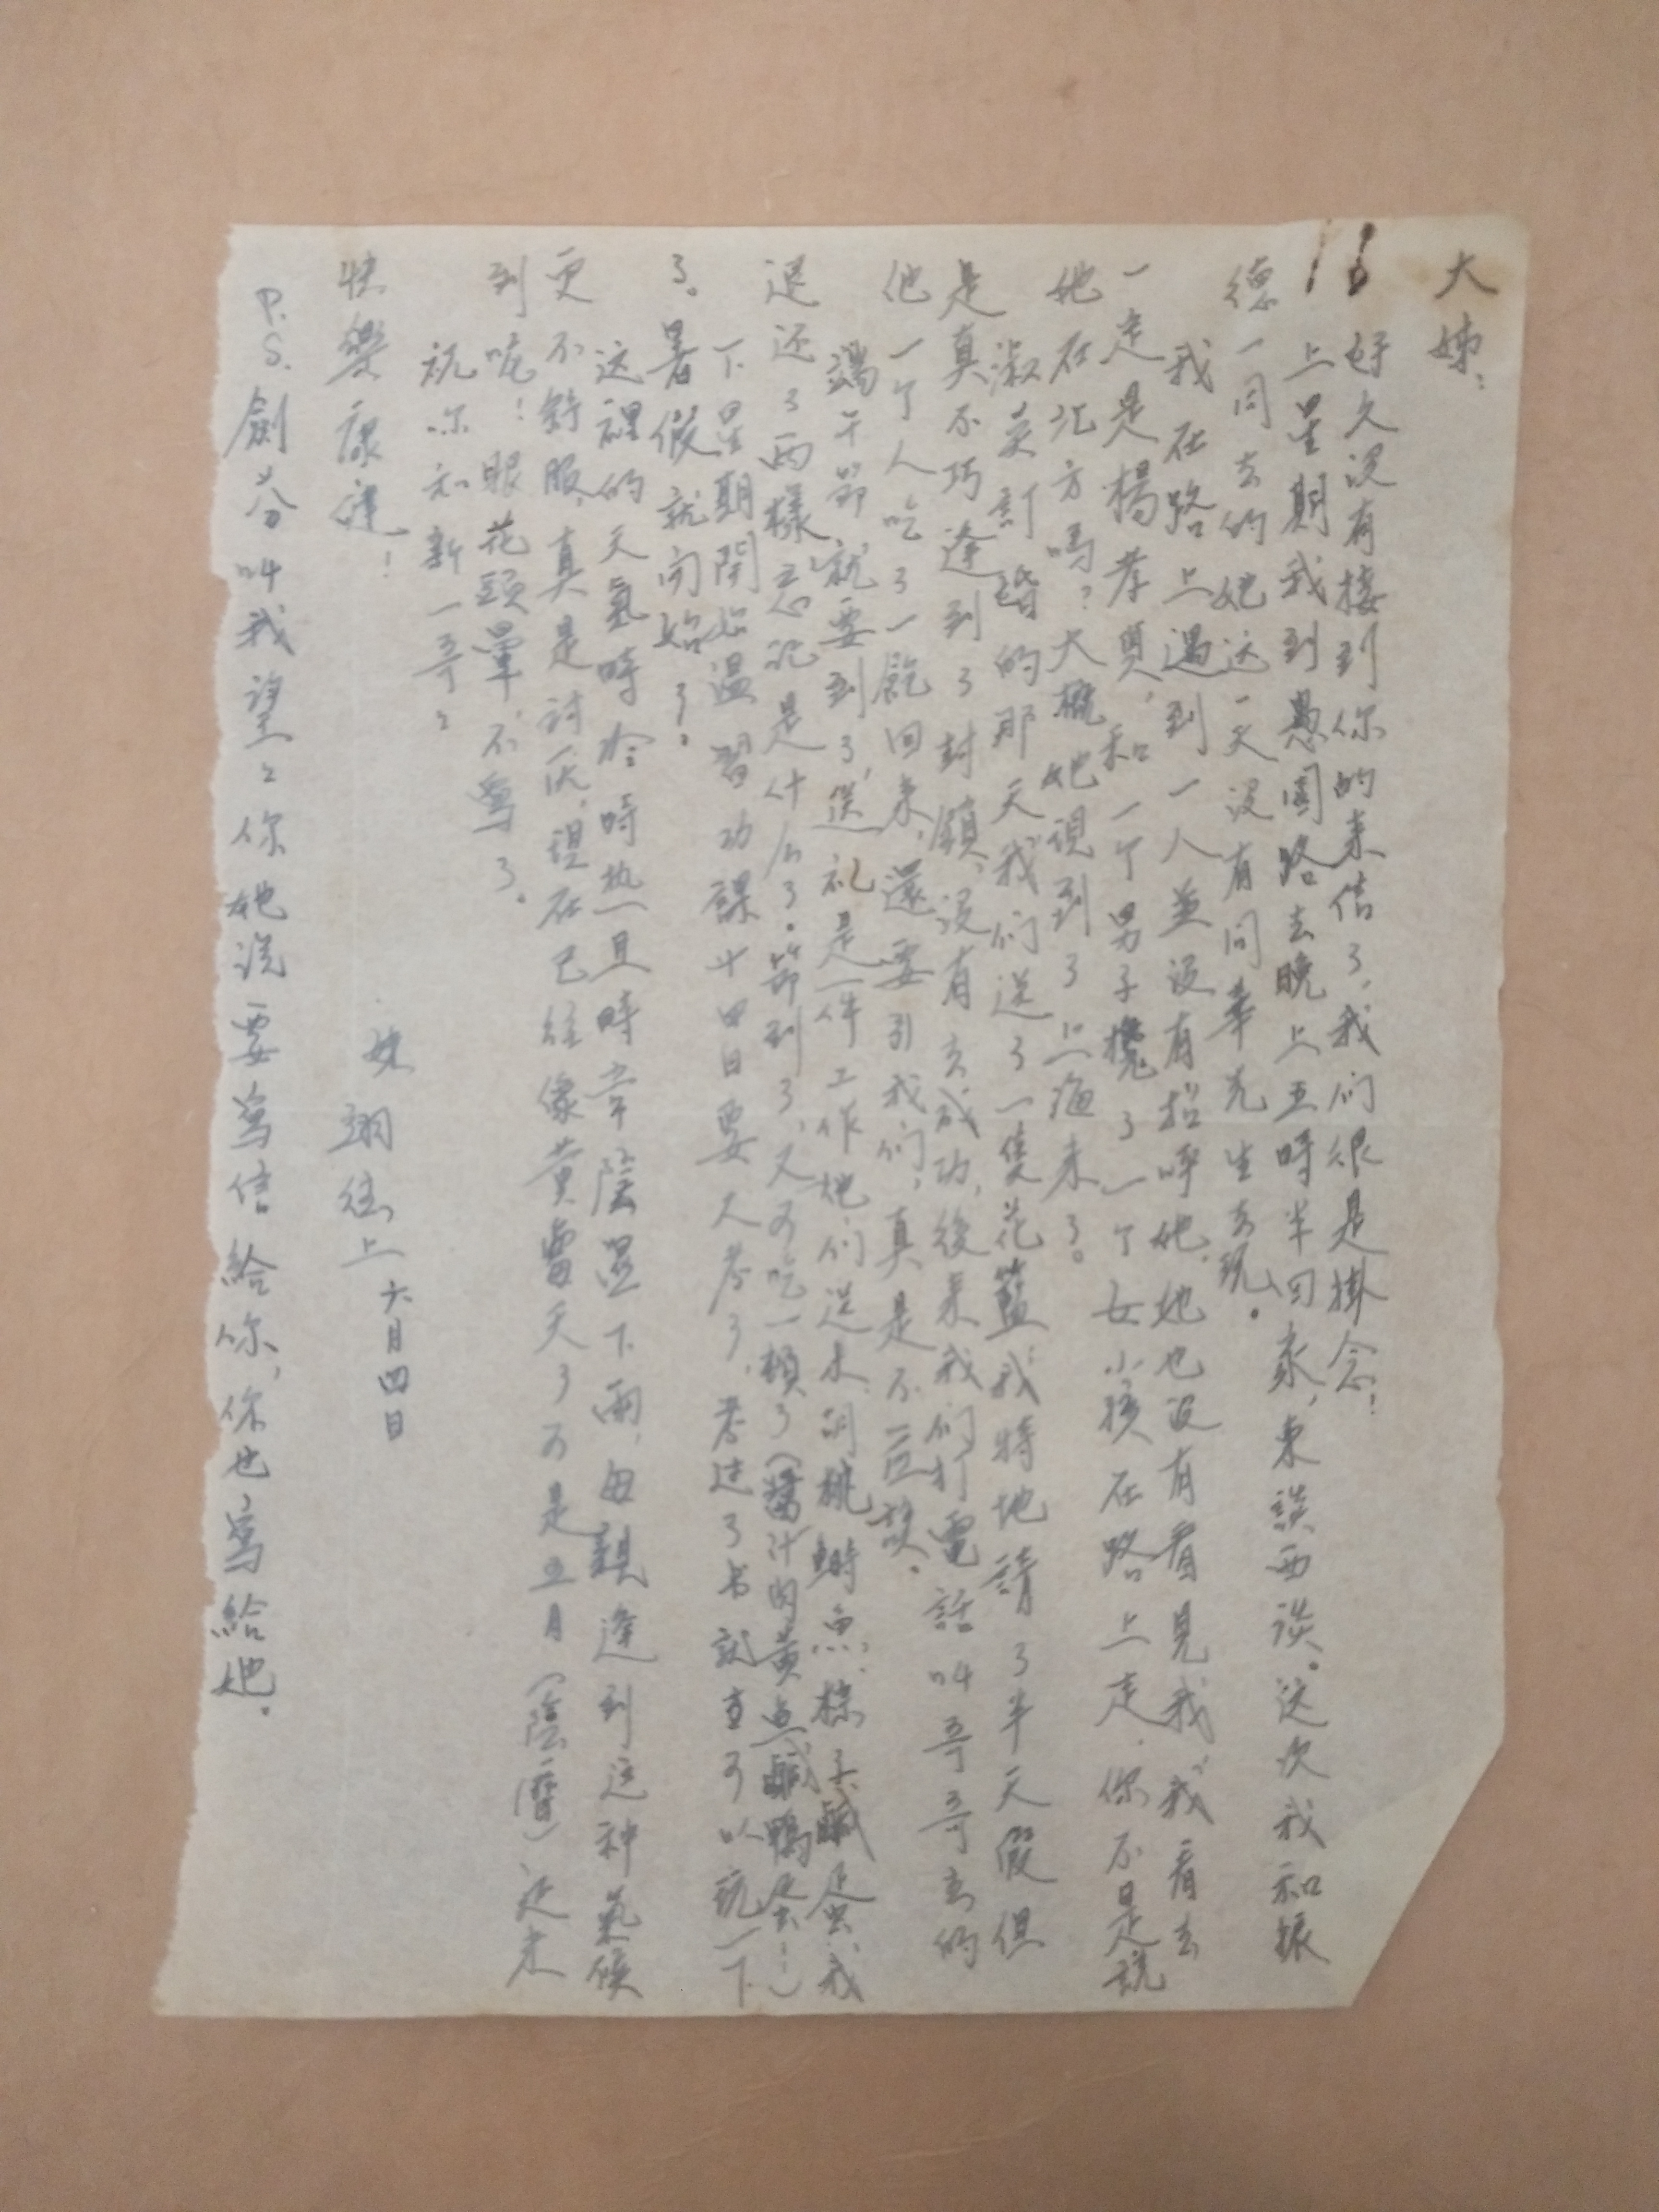 大姊：
好久没有接到你的来信了，我们很是掛念！
上星期我到愚園路去晚上五時半回家，東談西谈。这次我和振
德一同去的她这一天没有同華先生去玩。
我在路上遇到一人並没有招呼她，她也没有看見我，我看去
一定是楊孝貞，和一个男子攙了一个女小孩在路上走，你不是説
她在北方嗎？大概她現到了上海来了。
淑英訂婚的那天我们送了一隻花籃我特地請了半天假但
是真不巧逢到了封鎖，没有去成功，後来我们打電話叫哥哥去的
他一个人吃了一飽回来，還要引我们，真是不应該。
端午節就要到了，送礼是一件工作她们送水胡桃鰣魚，粽子，鹹蛋，我
还了兩樣忘記是什么了。節到了，又可吃一頓了（醬汁肉黄魚鹹鴨蛋！）
下星期開始温習功課十四日要大考了，考过了书就可以玩一下
了。暑假就開始了。
这裡的天氣時冷時热一旦時常陰濕下雨，每親逢到这种氣候
更不舒服，真是討厌，現在已経像黄霉天了可是五月（陰曆）还未
到呢！眼花頭暈，不寫了。
祝你和新一哥：
快樂康健！
妹 上 六月四日
P.S. 劍芬叫我望望你她说要寫信給你，你也寫給她。